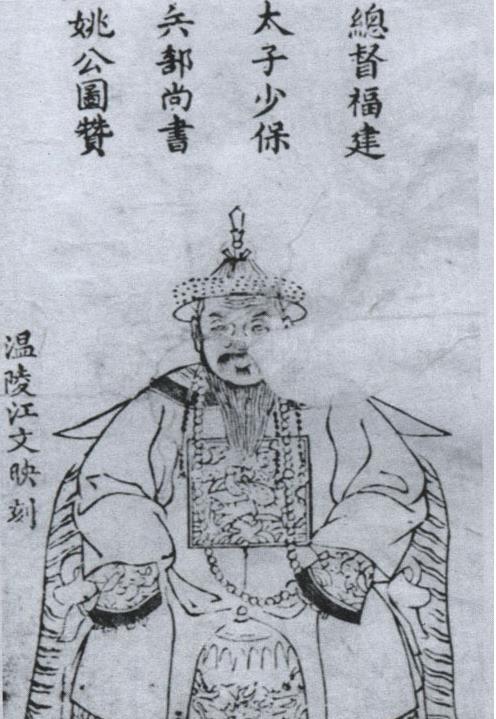 總督福建
太子少保
兵部尚書
姚公圖贊
温陵江文映刻